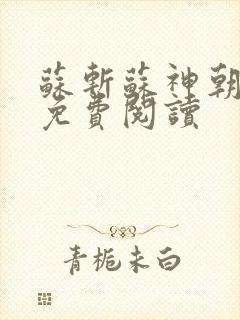 蘇斬蘇神朝
免費閱讀
青梔未白